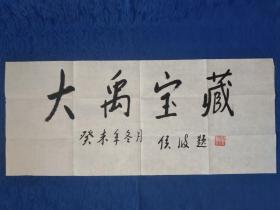 大禹宝藏
癸未年冬月 侯波题